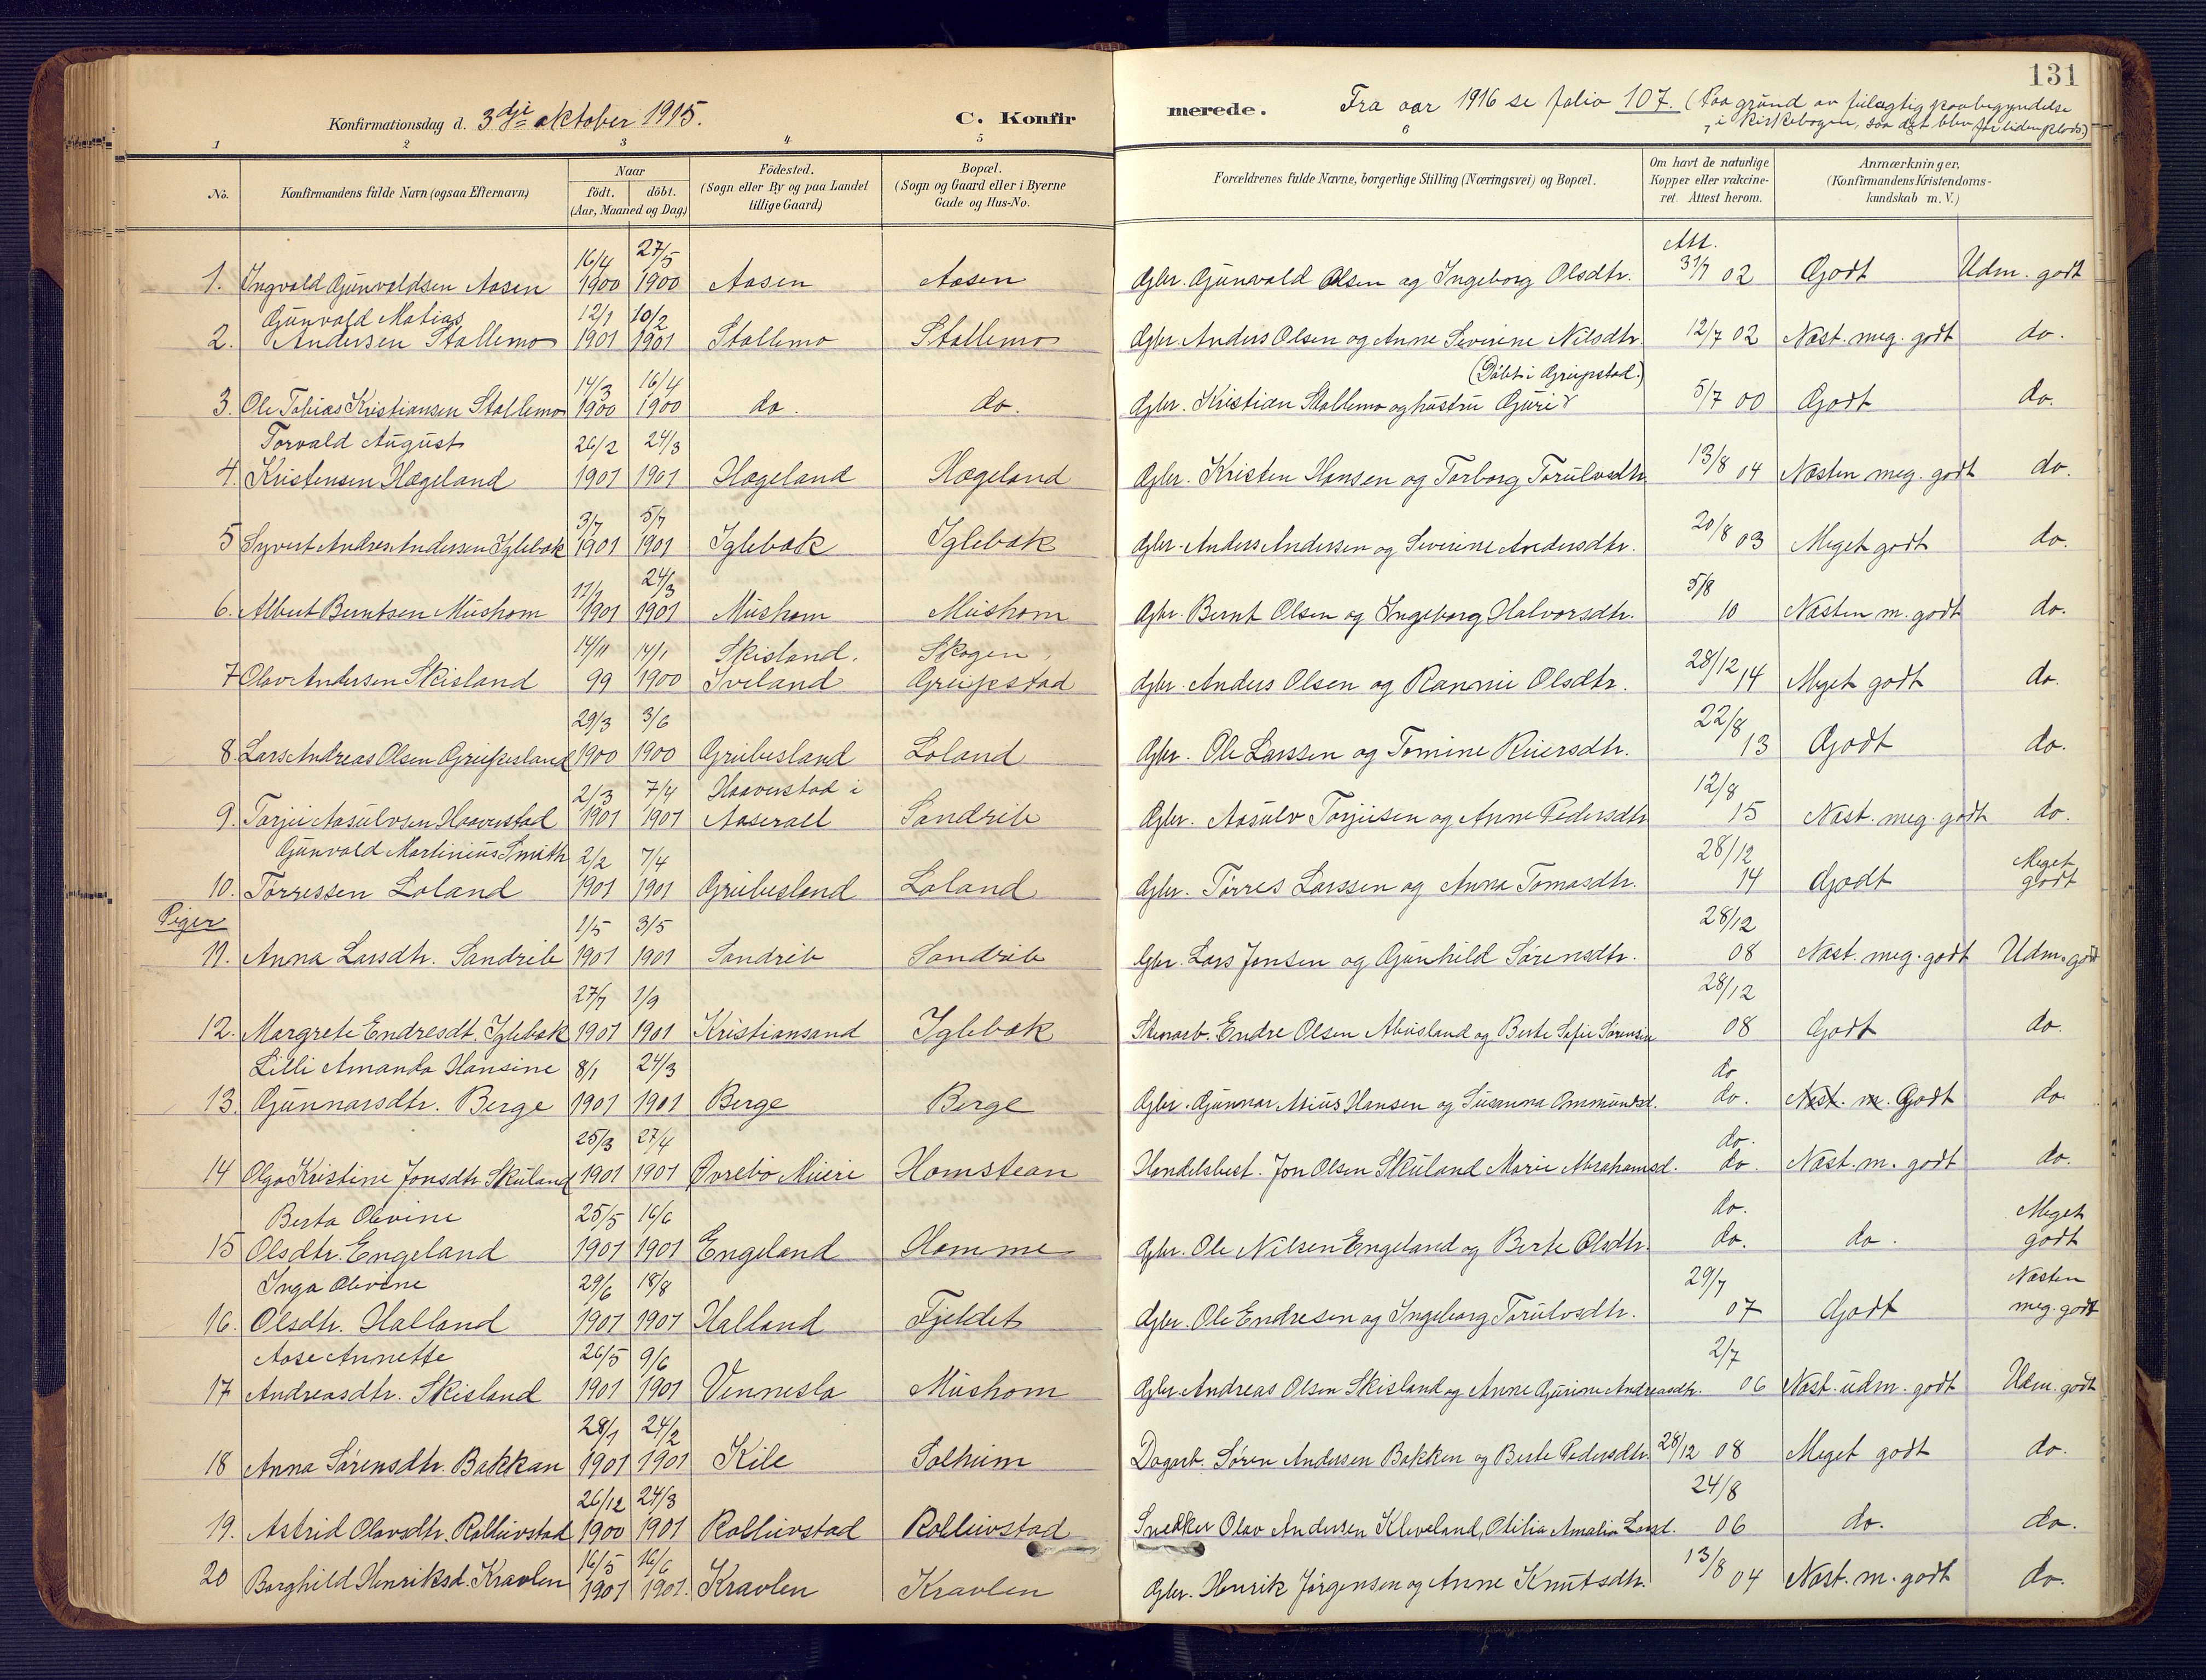 131
Konfirmationsdag d. 3dje oktober 1915. C. Konfirmerede. Fra aar 1916 se folio 107. (Paa grund av feilagtig paabegyndelse
i kirkebogen, saa det blev for liden plads)
1 2 3 4 5 6
No. Konfirmandens fulde Navn (ogsaa Efternavn) Naar födt. döbt. (Aar, Maaned og Dag) Födested. (Sogn eller By og paa Landet tillige Gaard) Bopæl. (Sogn og Gaard eller i Byerne Gade og Hus-No. Forældrenes fulde Navne, borgerlige Stilling (Næringsvei) og Bopæl. Om havt de naturlige Kopper eller vakcineret. Attest herom. Anmærkninger. (Konfirmandens Kristendomskundskab m. V.)
16/4 27/5 Att.
1. Ingvald Gunvaldsen Aasen 1900 1900 Aasen Aasen Gbr. Gunvald Olsen og Ingeborg Olsdtr. 31/7 02 Godt Udm. godt
Gunvald Matias 12/1 10/2
2. Andersen Stallemo 1901 1901 Stallemo Stallemo Gbr. Anders Olsen og Anne Severine Nilsdtr. 12/7 02 Næst. meg. godt do.
14/3 16/4 (Döbt i Greipstad.)
3. Ole Tobias Kristiansen Stallemo 1900 1900 do. do. Gbr. Kristian Stallemo og hustru Guri 5/7 00 Godt do.
Torvald August 26/2 24/3
4. Kristensen Hægeland 1901 1901 Hægeland Hægeland Gbr. Kristen Hansen og Torborg Torulvsdtr. 13/8 04 Næsten meg. godt do.
3/7 5/7
5 Syvert Andreas Andersen Iglebæk 1901 1901 Iglebæk Iglebæk Gbr. Anders Andersen og Severine Andersdtr. 20/8 03 Meget godt do.
24/3 5/8
6. Albert Berntsen Mushom 1901 1901 Mushom Mushom Gbr. Bernt Olsen og Ingeborg Halvorsdtr. 10 Næsten m. godt do.
14/11 14/1 Skisland. Skogen,
7 Olav Andersen Skisland 99 1900 Iveland Greipstad Gbr. Anders Olsen og Rannei Olsdtr. 28/12 14 Meget godt do.
29/3 3/6 22/8
8. Lars Andreas Olsen Greipesland 1900 1900 Greibesland Loland Gbr. Ole Larssen og Tomine Reiersdtr. 13 Godt do.
2/3 7/4 Haaverstad i 12/8
9. Torjei Aasulvsen Haaverstad 1901 1901 Aaserall Sandrib Gbr. Aasulv Torjeisen og Anne Pedersdtr 15 Næst. meg. godt do.
Gunvald Martinius Smith 2/2 7/4 28/12 Meget
10. Torressen Loland 1901 1901 Greibesland Loland Gbr. Törres Larssen og Anna Tomasdtr. 14 Godt godt
Piger 1/5 3/5 28/12
11. Anna Larsdtr. Sandrib 1901 1901 Sandrib Sandrib Gbr. Lars Jensen og Gunhild Sörensdtr. 08 Næst. meg. godt Udm. godt
27/7 1/9 28/12
12. Margrete Endresdt. Iglebæk 1901 1901 Kristiansand Iglebæk Stenarb. Endre Olsen Abusland og Berte Sofie Sörensen 08 Godt do.
Lilli Amanda Hansine 8/1 24/3 do
13. Gunnarsdtr. Berge 1901 1901 Berge Berge Gbr. Gunnar Arius Hansen og Susanna Ommundsd. do. Næst. m. Godt do.
25/3 27/4 do.
14 Olga Kristine Jonsdtr. Skuland 1901 1901 Övrebö Mieri Homstean Handelsbest. Jon Olsen Skuland Marie Abrahamsd. do. Næst. m. godt do.
Berta Olevine 25/5 16/6 do. Meget
15 Olsdtr. Engeland 1901 1901 Engeland Homme Gbr. Ole Nilsen Engeland og Berte Olsdtr. do. do. godt
Inga Olevine 29/6 18/8 29/7 Næsten
16. Olsdtr. Halland 1901 1901 Halland Fjeldet Gbr. Ole Endresen og Ingeborg Torulvsdtr. 07 Godt meg. godt
Aase Annette 26/5 9/6 2/7
17 Andreasdtr. Skisland 1901 1901 Vennesla Mushom Gbr. Andreas Olsen Skisland og Anne Gurine Andreasdtr. 06 Næst. udm. godt Udm. godt
28/1 24/2
18 Anna Sörensdtr. Bakkan 1901 1901 Kile Solheim Dagarb. Sören Andersen Bakken og Berte Pedersdtr. 28/12 08 Meget godt do.
26/12 24/3 24/8
19. Astrid Olavsdtr. Rolleivstad 1900 1901 Rolleivstad Rolleivstad Snekker Olav Andersen Kleveland, Otilia Amalia Larsd. 06 do. do.
16/5 16/6
20 Borghild Henriksd. Kravlen 1901 1901. Kravlen Kravlen Gbr. Henrik Jörgensen og Anne Knutsdtr. 13/8 04 Næst. m. godt do.